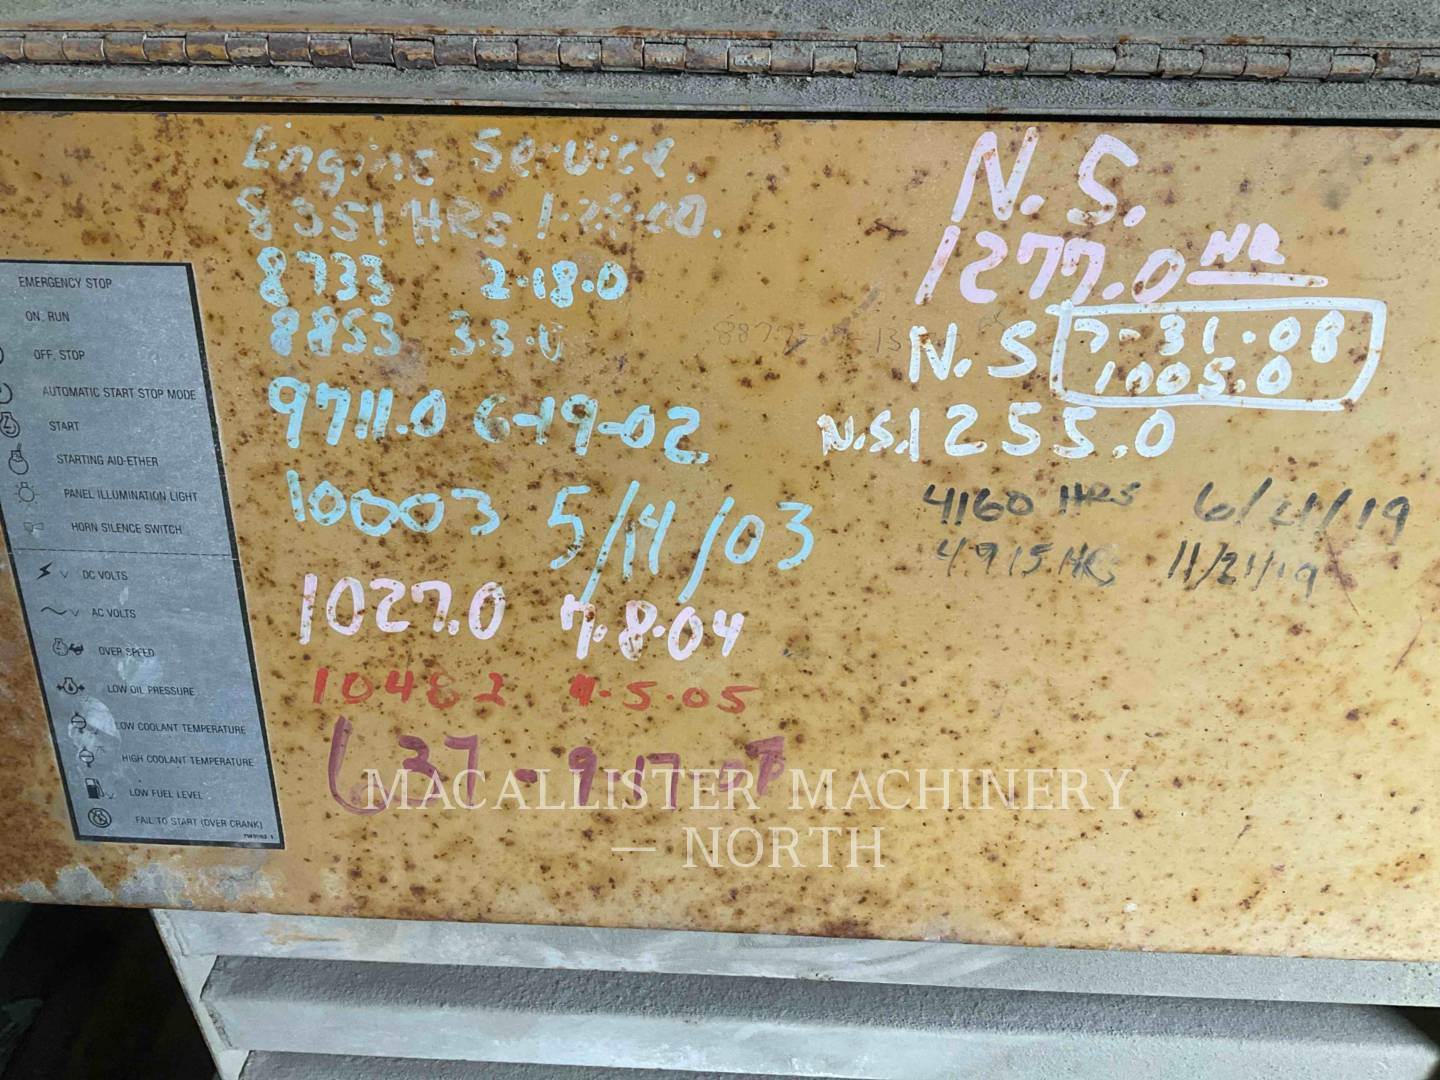 EMERGENCY STOP
ON, RUN
OFF, STOP
AUTOMATIC START STOP MODE
START
STARTING AID-ETHER
PANEL ILLUMINATION LIGHT
HORN SILENCE SWITCH
V DC VOLTS
V AC VOLTS
OVER SPEED
LOW OIL PRESSURE
LOW COOLANT TEMPERATURE
HIGH COOLANT TEMPERATURE
LOW FUEL LEVEL
FAIL TO START (OVER CRANK)
Engine Service.
8351 HRS. 1-28-00.
8733 2-18-0
8853 3-3-0
9711.0 6-19-02
10003 5/14/03
1027.0 7.8.04
10482 4-5-05
637-9-17-07
N.S.
1277.0 HR
N.S 7-31-08
1005.0
N.S. 1255.0
4160 HRS 6/21/19
4915 HRS 11/21/19
MACALLISTER MACHINERY
— NORTH